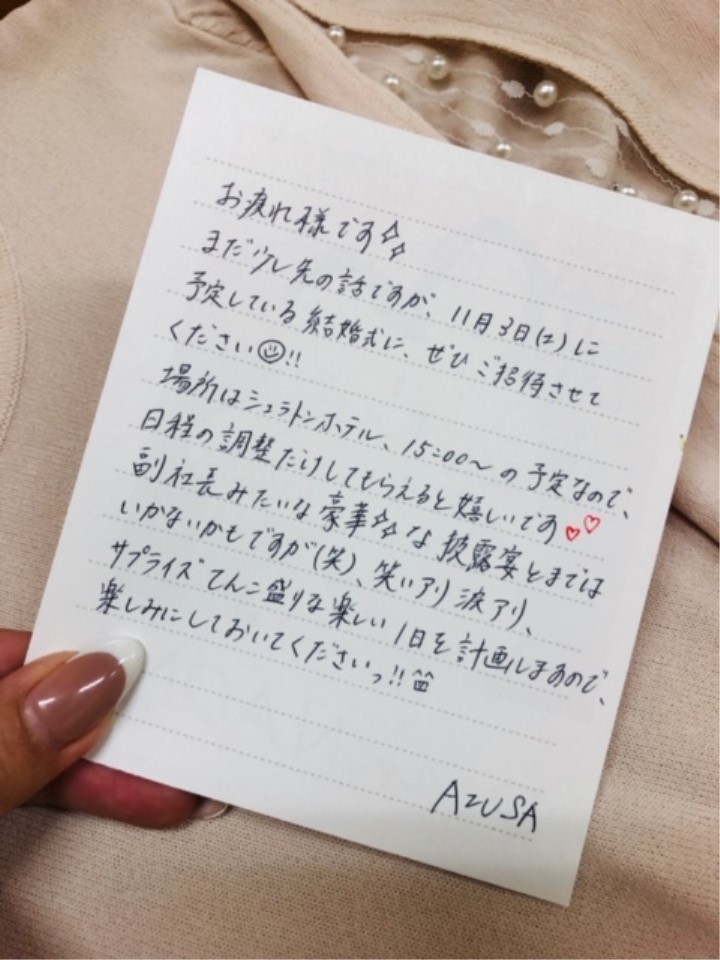 お疲れ様です✧✧
まだ少し先の話ですが、11月3日(土)に
予定している結婚式に、ぜひご招待させて
ください☺!!
場所はシェラトンホテル、15:00〜の予定なので、
日程の調整だけしてもらえると嬉しいです♡♡
副社長みたいな豪華✧✧な披露宴とまでは
いかないかもですが(笑)、笑いアリ涙アリ、
サプライズてんこ盛りな楽しい1日を計画しますので、
楽しみにしておいてくださいっ!!
AZUSA